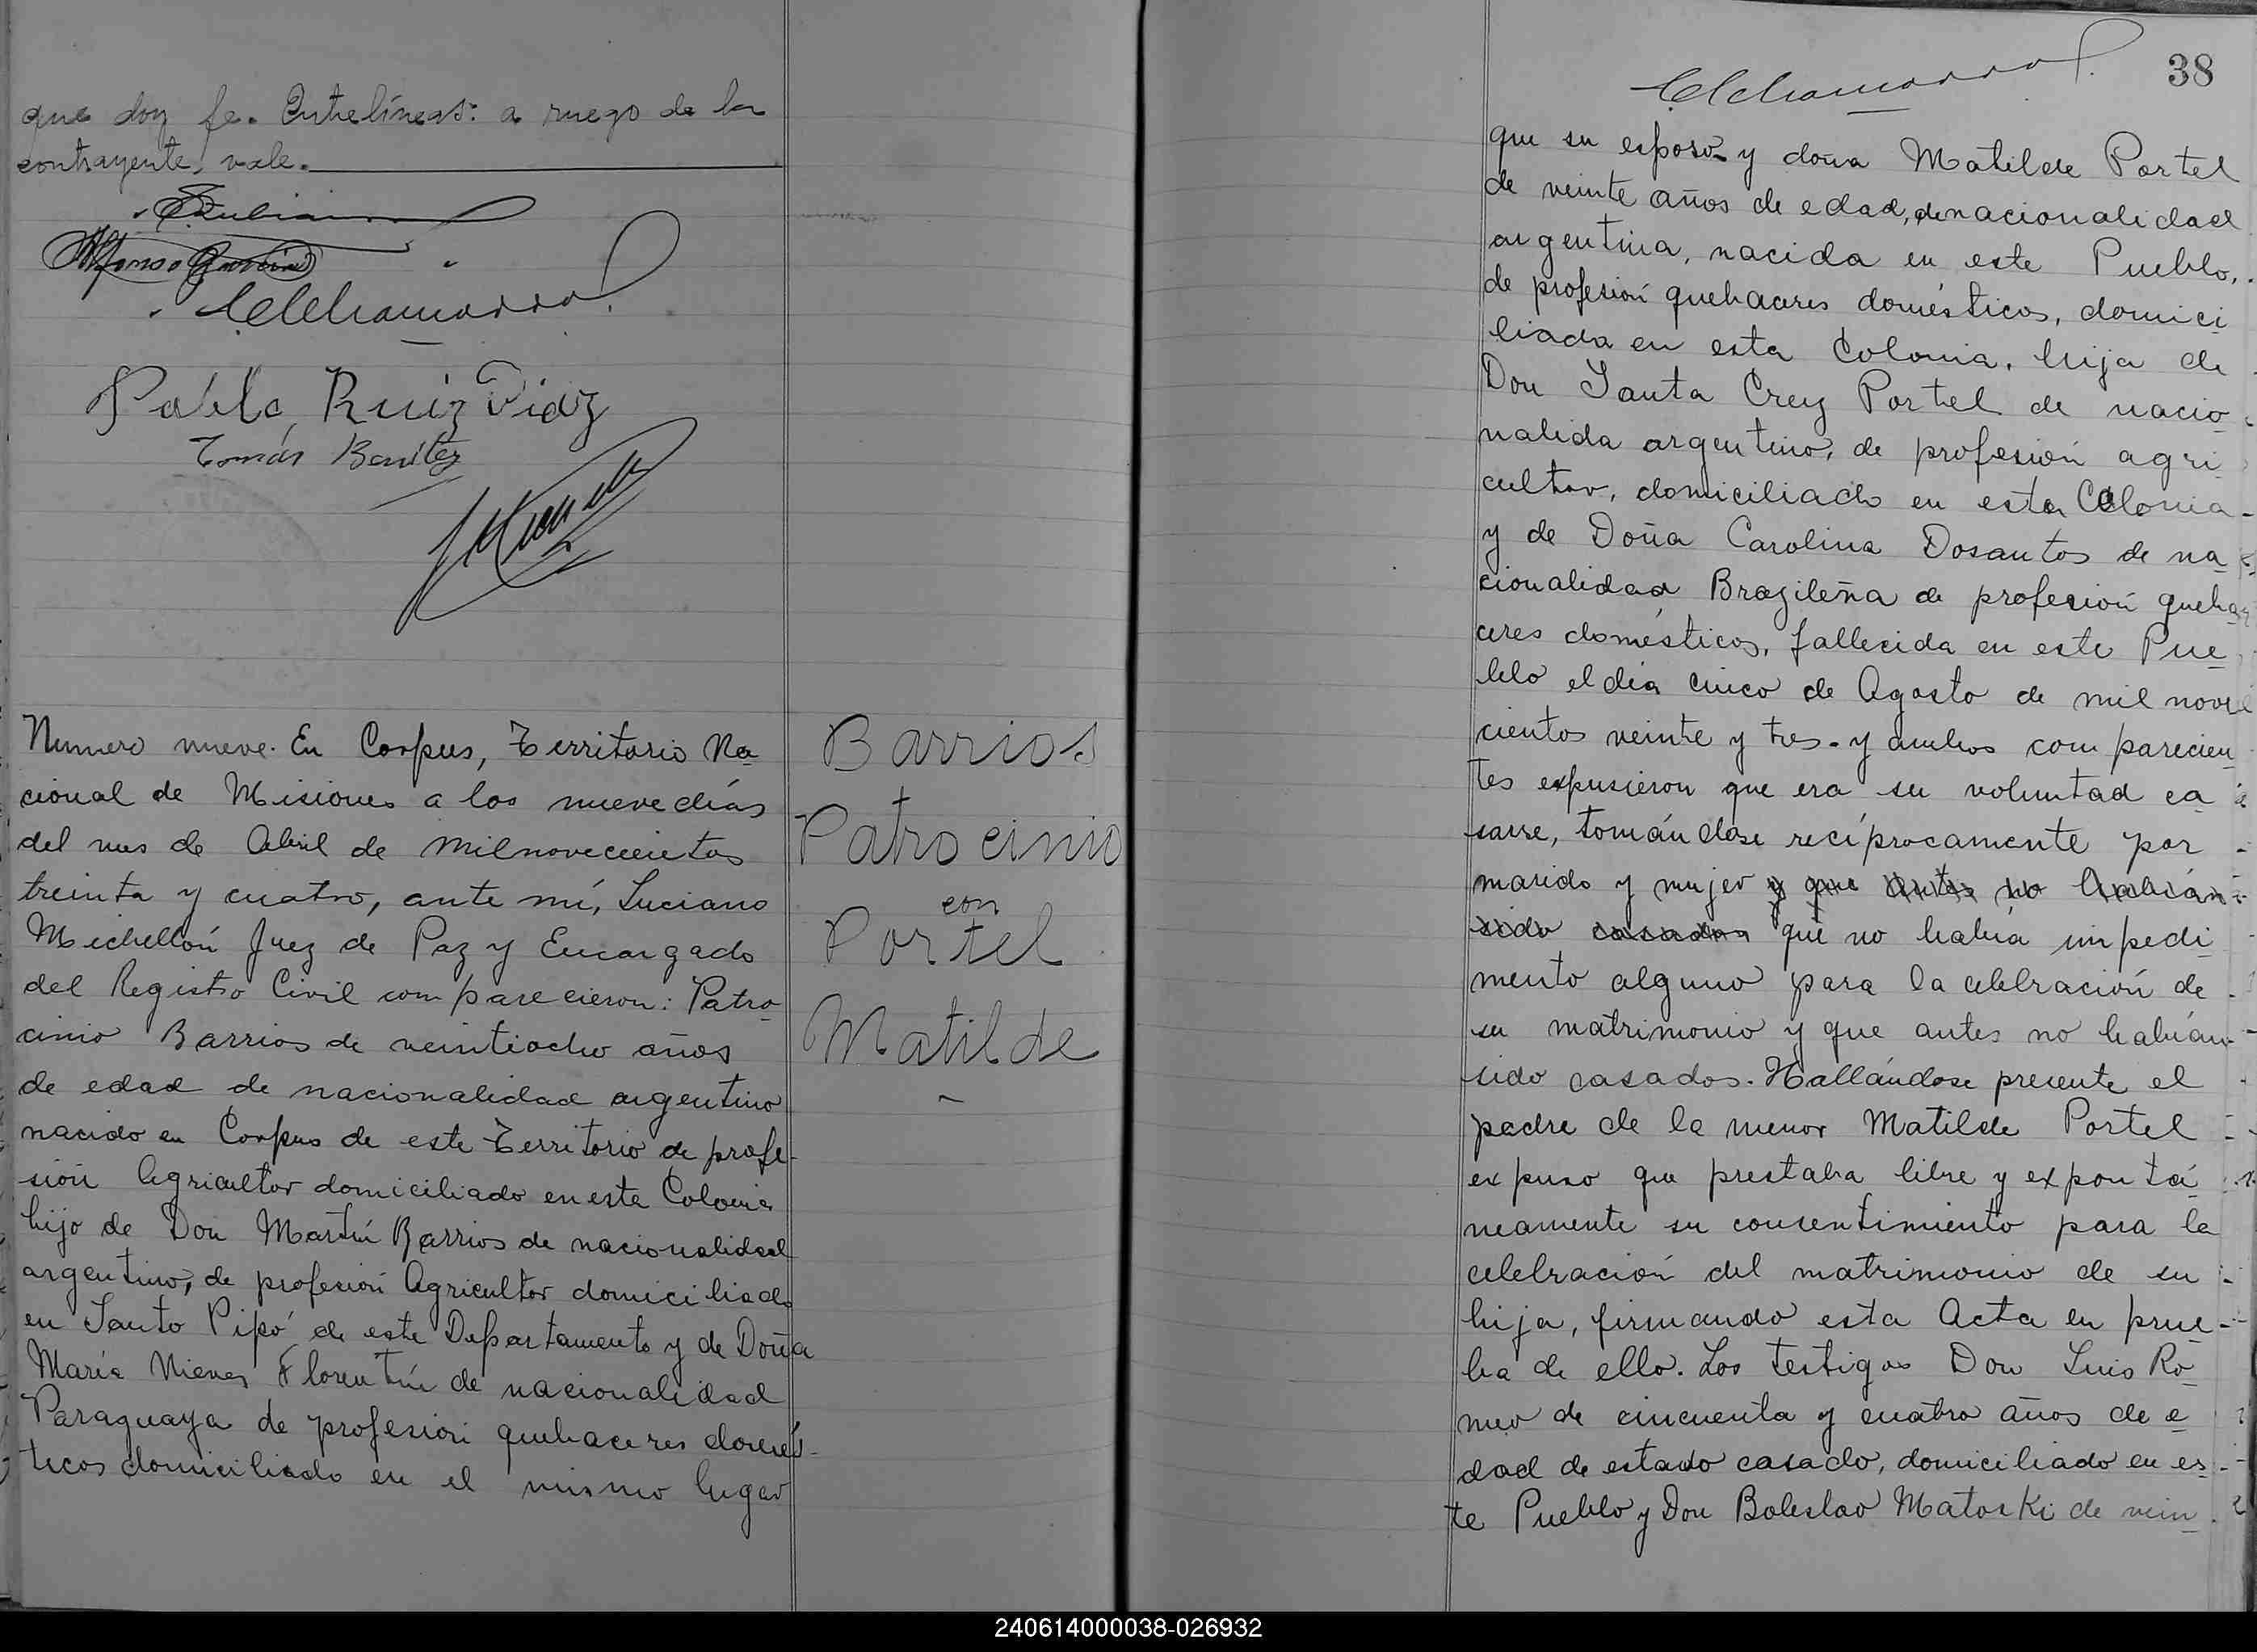 que doy fe. Entrelíneas: a ruego de la
contrayente, vale.
Alfonso
Pablo Ruiz Diaz
Tomás Benítez
Numero nueve. En Corpus, Territorio Na
cional de Misiones a los nueve días
del mes de Abril de mil novecientos
treinta y cuatro, ante mí, Luciano
Michellón Juez de Paz y Encargado
del Registro Civil comparecieron: Patro
cinio Barrios de veintiocho años
de edad de nacionalidad argentino
nacido en Corpus de este Territorio de profe-
sión Agricultor domiciliado en esta Colonia
hijo de Don Martín Barrios de nacionalidad
argentino, de profesión Agricultor domiciliado
en Santo Pipó de este Departamento y de Doña
María Nieves Florentín de nacionalidad
Paraguaya de profesión quehaceres domés-
ticos domiciliado en el mismo lugar
Barrios
Patrocinio
con
Portel
Matilde
38
que su esposo y doña Matilde Portel
de veinte años de edad, de nacionalidad
argentina, nacida en este Pueblo,
de profesión quehaceres domésticos, domici
liada en esta Colonia, hija de
Don Santa Cruz Portel de nacio
nalida argentino, de profesión agri
cultor, domiciliado en esta Colonia
y de Doña Carolina Dosantos de na
cionalidad Brazileña de profesión queha
ceres domésticos, fallecida en este Pue
blo el día cinco de Agosto de mil nove
cientos veinte y tres. y ambos comparecien
tes expusieron que era su voluntad ca
sarse, tomándose recíprocamente por
marido y mujer y que antes no habían
sido casados que no había impedi
mento alguno para la celebración de
su matrimonio y que antes no habían
sido casados. Hallándose presente el
padre de la menor Matilde Portel
expuso que prestaba libre y expontá
neamente su consentimiento para la
celebración del matrimonio de su
hija, firmando esta Acta en prue-
ba de ello. Los testigos Don Luis Ro
meo de cincuenta y cuatro años de e
dad de estado casado, domiciliado en es
te Pueblo y Don Boleslao Matoski de vein
240614000038-026932